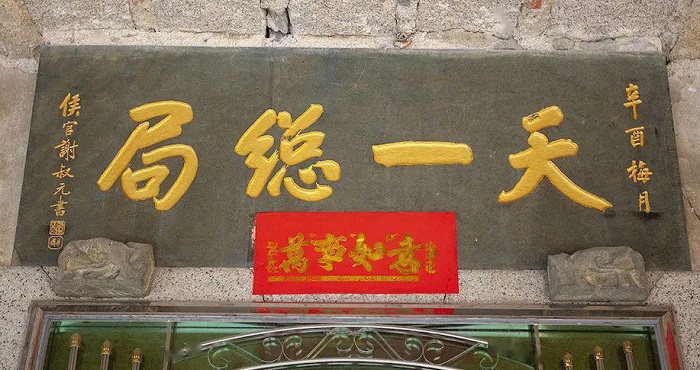 辛酉梅月
天一緫局
侯官謝叔元書
萬事如意